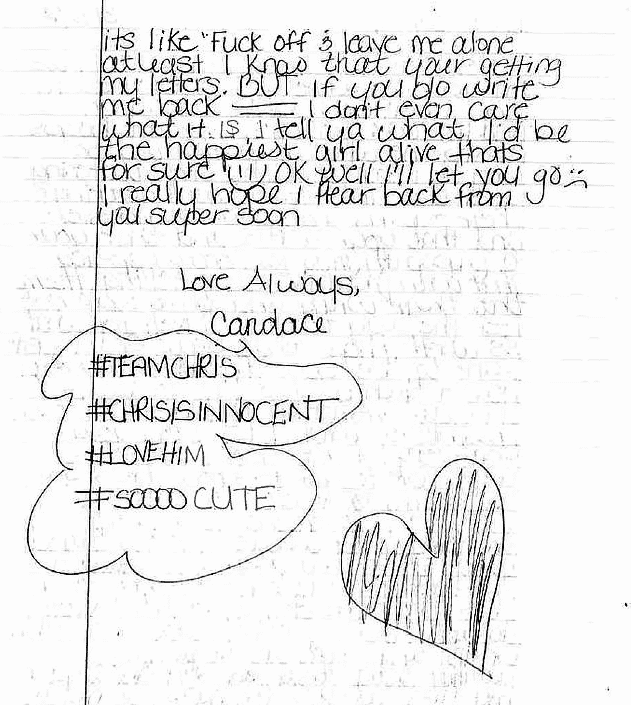 its like "Fuck off & leave me alone
atleast I knos that your getting
my letters. BUT if you do write
me back I don't even care
what it IS I tell ya what, I'd be
the happiest girl alive thats
for sure !!!! OK well I'll let you go :(
I really hope I Hear back from
ya! super soon
Love Always,
Candace
#TEAMCHRIS
#CHRISISINNOCENT
#LOVEHIM
#SOOOOCUTE